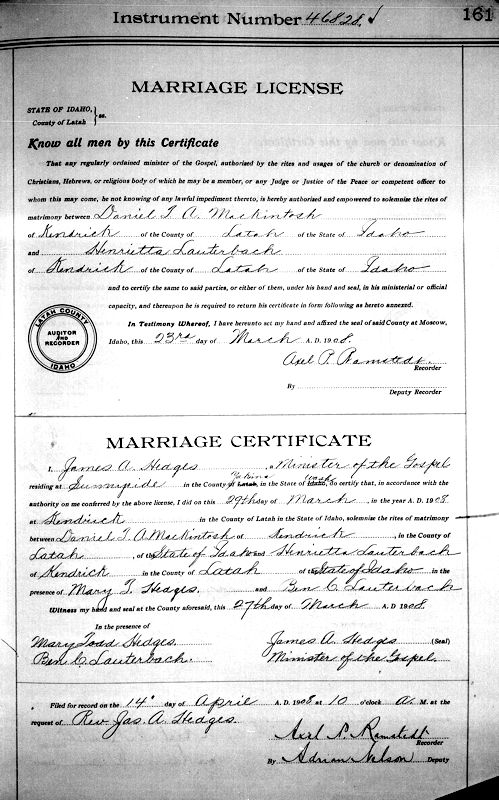 Instrument Number 46828
161
MARRIAGE LICENSE
STATE OF IDAHO,
County of Latah } ss.
Know all men by this Certificate
That any regularly ordained minister of the Gospel, authorised by the rites and usages of the church or denomination of
Christians, Hebrews, or religious body of which he may be a member, or any Judge or Justice of the Peace or competent officer to
whom this may come, he not knowing of any lawful impediment thereto, is hereby authorised and empowered to solemnize the rites of
matrimony between Daniel T. A. Mackintosh
of Kendrick of the County of Latah of the State of Idaho
and Henrietta Lauterbach
of Kendrick of the County of Latah of the State of Idaho
and to certify the same to said parties, or either of them, under his hand and seal, in his ministerial or official
capacity, and thereupon he is required to return his certificate in form following as hereto annexed.
In Testimony Whereof, I have hereunto set my hand and affixed the seal of said County at Moscow,
Idaho, this 23rd day of March A. D. 1908.
LATAH COUNTY
AUDITOR
AND
RECORDER
IDAHO
Axel P. Ramstedt.
Recorder
By
Deputy Recorder
MARRIAGE CERTIFICATE
I, James A. Hedges, a Minister of the Gospel
residing at Sunnyside in the County of Latah, Yakima in the State of Idaho, Wash. do certify, that in accordance with the
authority on me conferred by the above license, I did on this 27th day of March, in the year A. D. 1908
at Kendrick in the County of Latah in the State of Idaho, solemnize the rites of matrimony
between Daniel T. A. Mackintosh of Kendrick, in the County of
Latah, of the State of Idaho and Henrietta Lauterbach
of Kendrick in the County of Latah of the State of Idaho in the
presence of Mary T. Hedges. and Ben C. Lauterbach
Witness my hand and seal at the County aforesaid, this 27th day of March A. D. 1908.
In the presence of
Mary Todd Hedges. James A. Hedges (Seal)
Ben C. Lauterbach. Minister of the Gospel.
Filed for record on the 14" day of April A. D. 1908 at 10 o'clock A. M. at the
request of Rev. Jas. A. Hedges.
Axel P. Ramstedt
Recorder
By Adrian Nelson Deputy